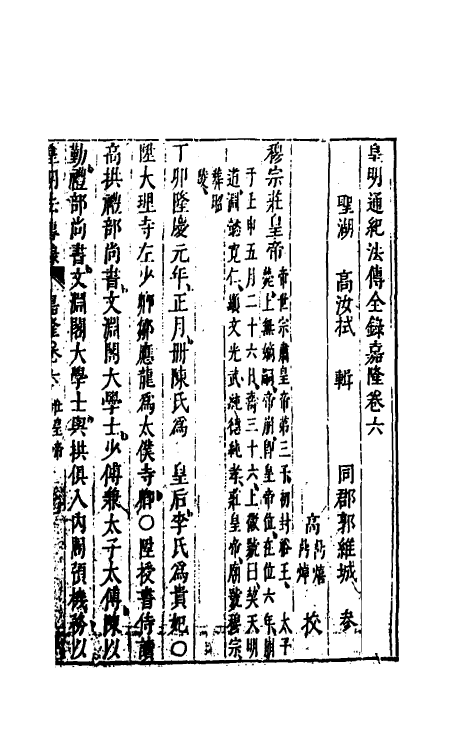 皇明通紀法傳全錄嘉隆卷六
聖湖 高汝栻 輯 同郡郭維城 參
高 校
穆宗莊皇帝 帝世宗肅皇帝第三子初封裕王 太子
薨上無嫡嗣帝崩即皇帝位在位六年崩
于壬申五月二十六日壽三十六上徽號曰契天明
道淵懿寬仁顯文光武純德弘孝莊皇帝廟號穆宗
葬昭
陵
丁卯隆慶元年正月册陳氏為 皇后李氏為貴妃○
陞大理寺左少卿鄒應龍為太僕寺卿○陞授書侍讀
高拱禮部尚書文淵閣大學士少傅兼太子太傅陳以
勤禮部尚書文淵閣大學士與拱俱入內閣預機務以
皇明法傳錄 嘉隆卷六 莊皇帝